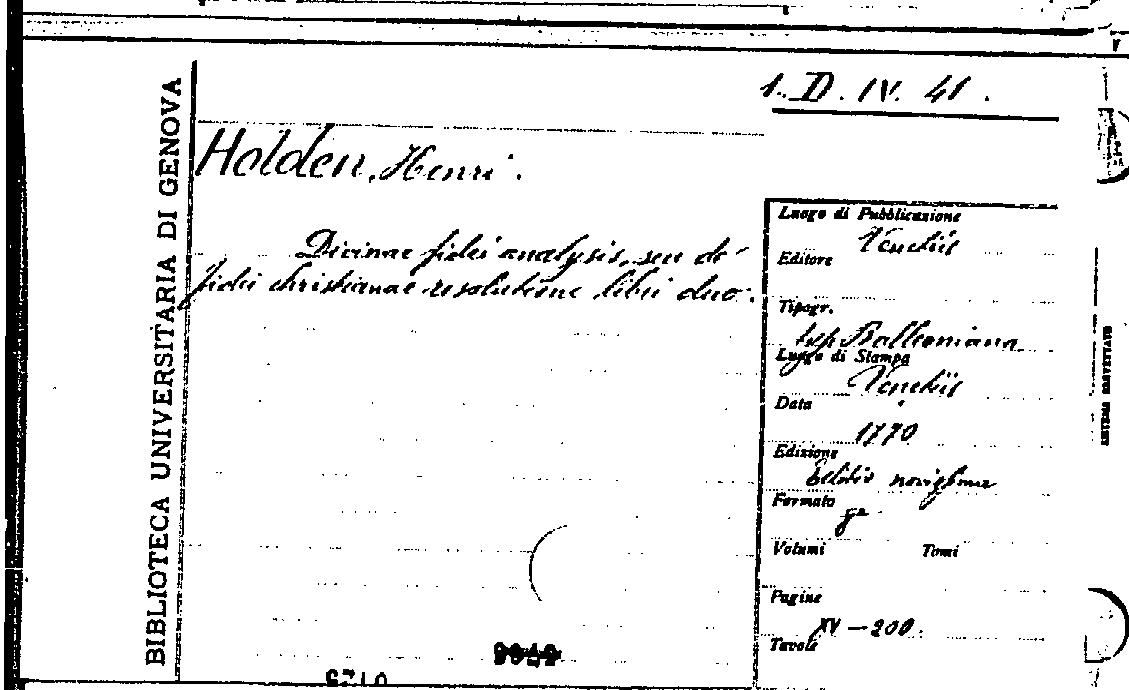 1. D. IV. 41.
BIBLIOTECA UNIVERSITARIA DI GENOVA
Holden, Henri.
Divinae fidei analysis, seu de
fidei christianae resolutione libri duo.
Luogo di Pubblicazione
Venetiis
Editore
Tipogr.
typ. Balleoniana
Luogo di Stampa
Venetiis
Data
1770
Edizione
Editio novissima
Formato
8°
Volumi Tomi
Pagine
XV - 200.
Tavole